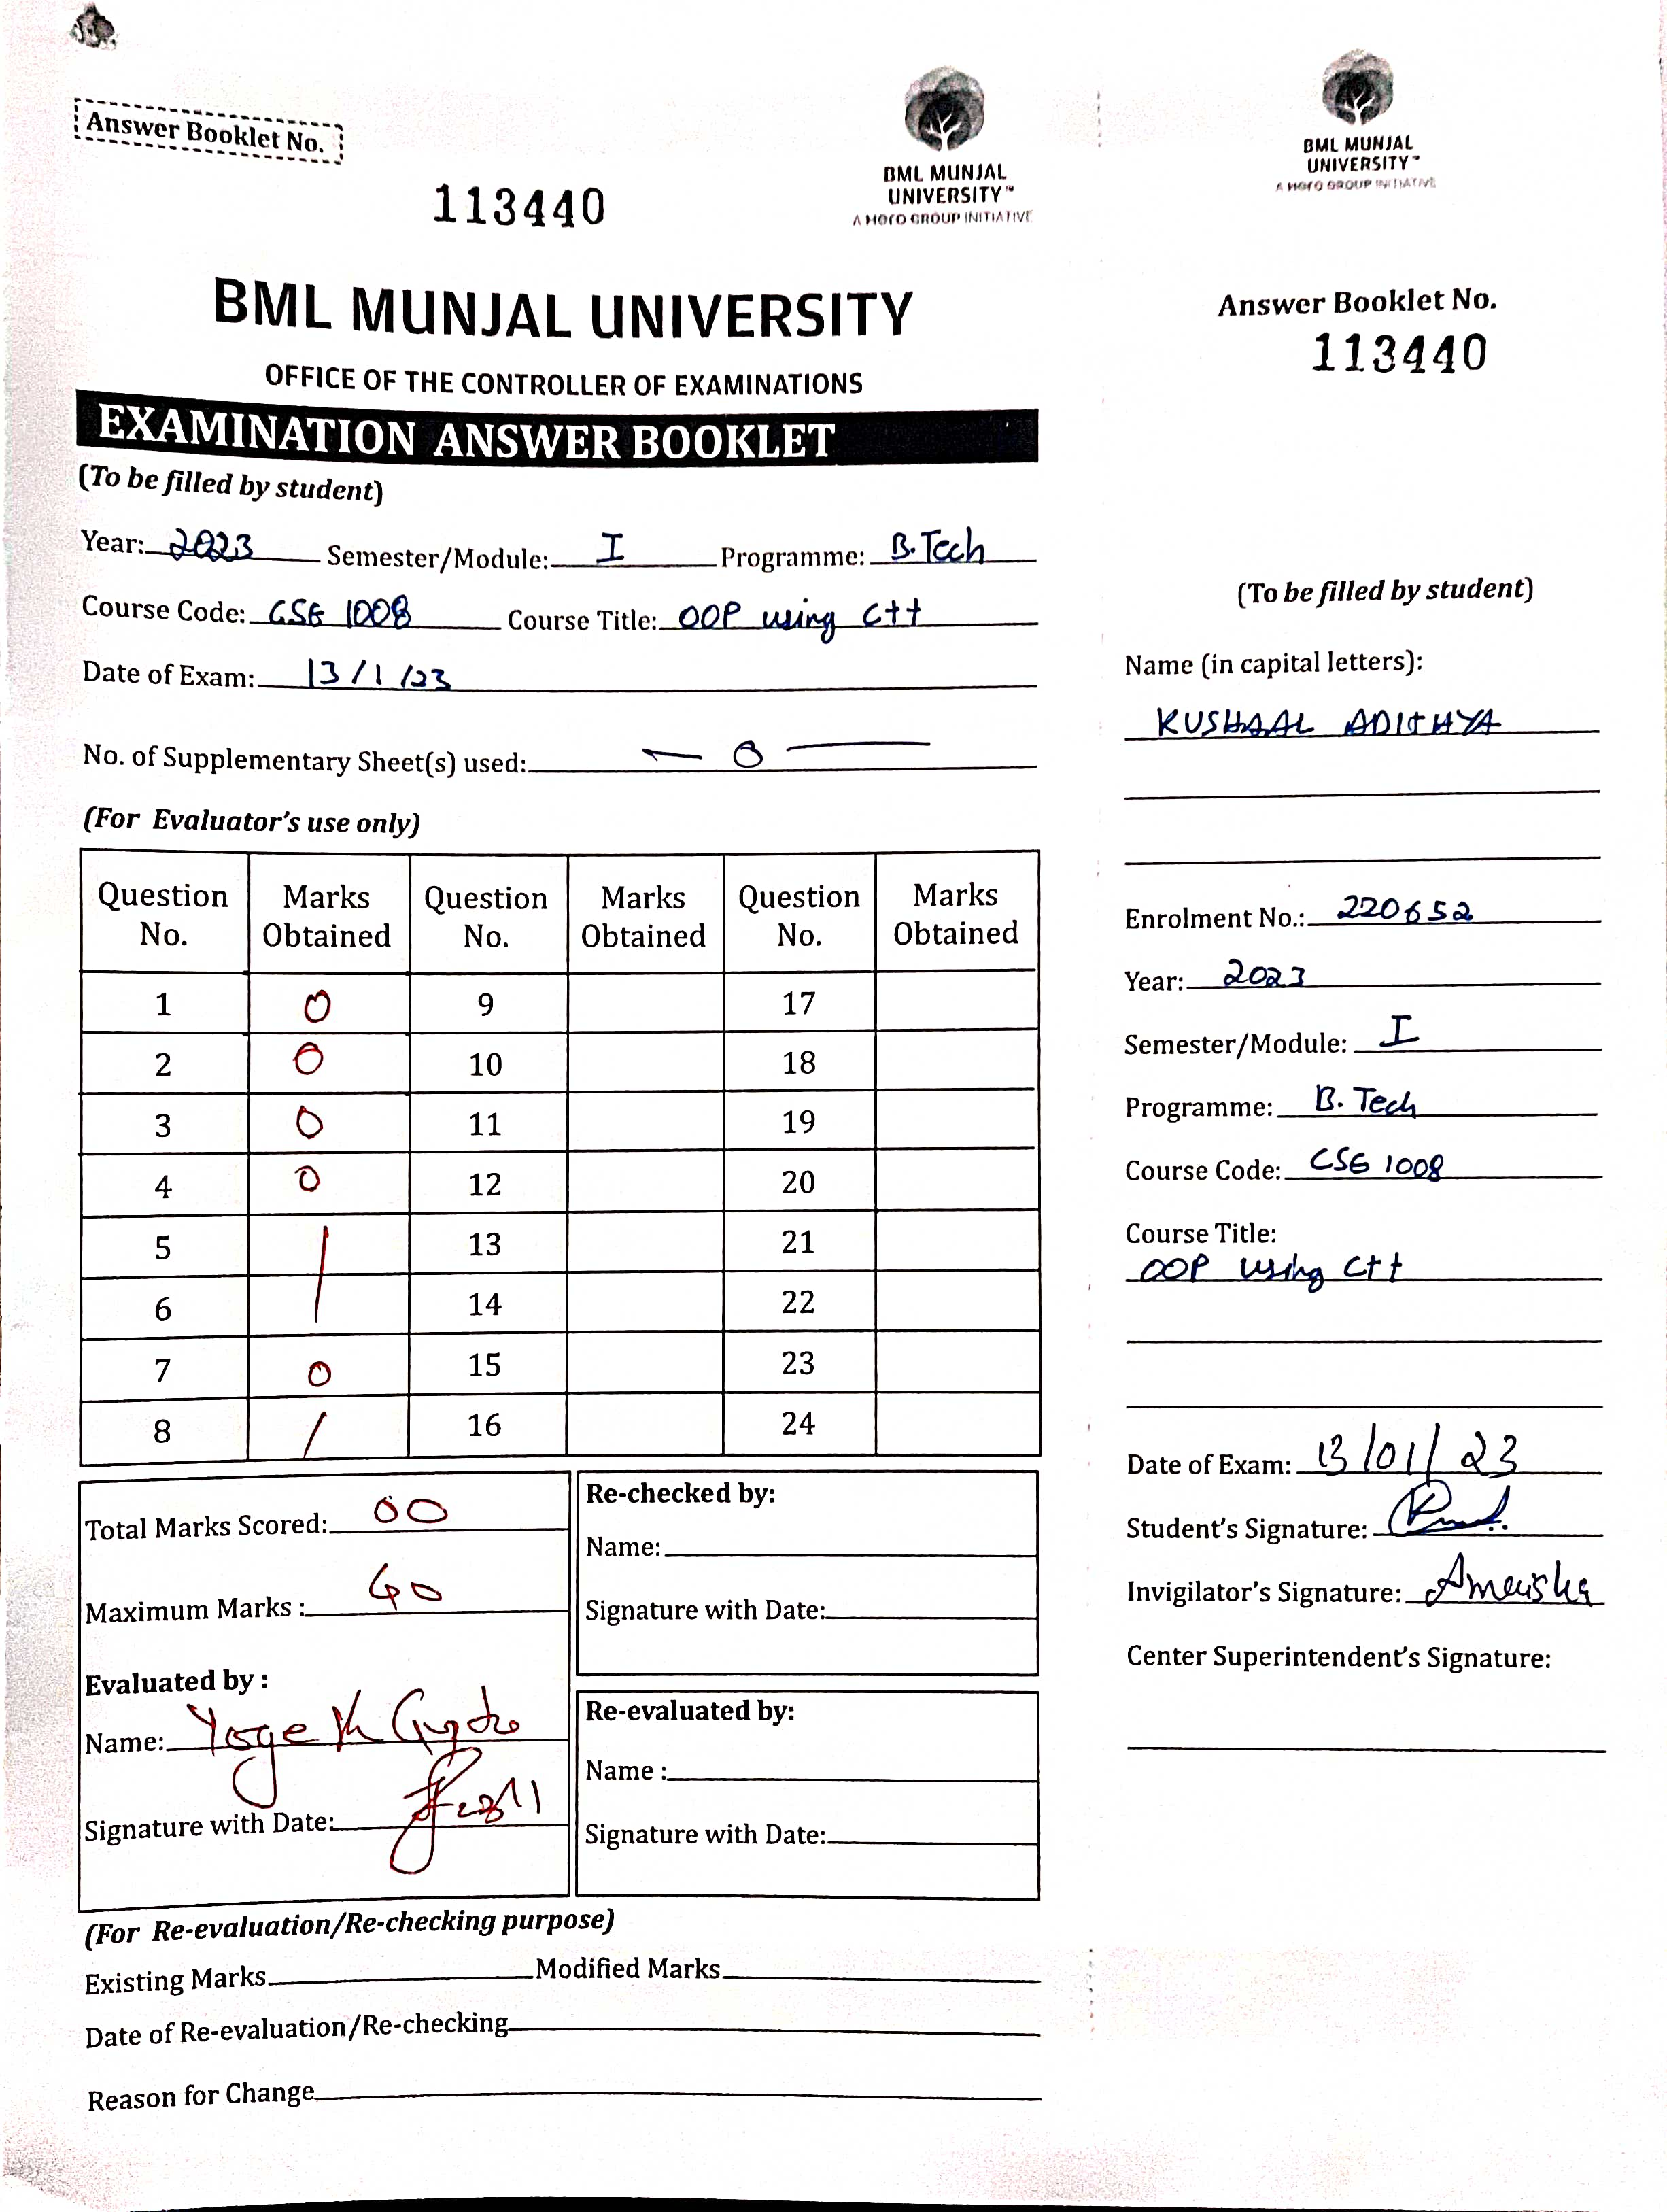 Answer Booklet No.
113440
BML MUNJAL
UNIVERSITY™
A HERO GROUP INITIATIVE
BML MUNJAL UNIVERSITY
OFFICE OF THE CONTROLLER OF EXAMINATIONS
EXAMINATION ANSWER BOOKLET
(To be filled by student)
Year: 2023 Semester/Module: I Programme: B.Tech
Course Code: CSE 1008 Course Title: OOP using C++
Date of Exam: 13/1/23
No. of Supplementary Sheet(s) used: — 0 —
(For Evaluator's use only)
Question No. Marks Obtained Question No. Marks Obtained Question No. Marks Obtained
1 0 9 17
2 0 10 18
3 0 11 19
4 0 12 20
5 13 21
6 14 22
7 0 15 23
8 / 16 24
Total Marks Scored: 00
Maximum Marks : 40
Evaluated by :
Name: Yogesh Gupta
Signature with Date:
Re-checked by:
Name:
Signature with Date:
Re-evaluated by:
Name :
Signature with Date:
(For Re-evaluation/Re-checking purpose)
Existing Marks Modified Marks
Date of Re-evaluation/Re-checking
Reason for Change
BML MUNJAL
UNIVERSITY™
A HERO GROUP INITIATIVE
Answer Booklet No.
113440
(To be filled by student)
Name (in capital letters):
KUSHAAL ADITHYA
Enrolment No.: 220652
Year: 2023
Semester/Module: I
Programme: B. Tech
Course Code: CSE 1008
Course Title:
OOP using C++
Date of Exam: 13/01/23
Student's Signature:
Invigilator's Signature:
Center Superintendent's Signature: